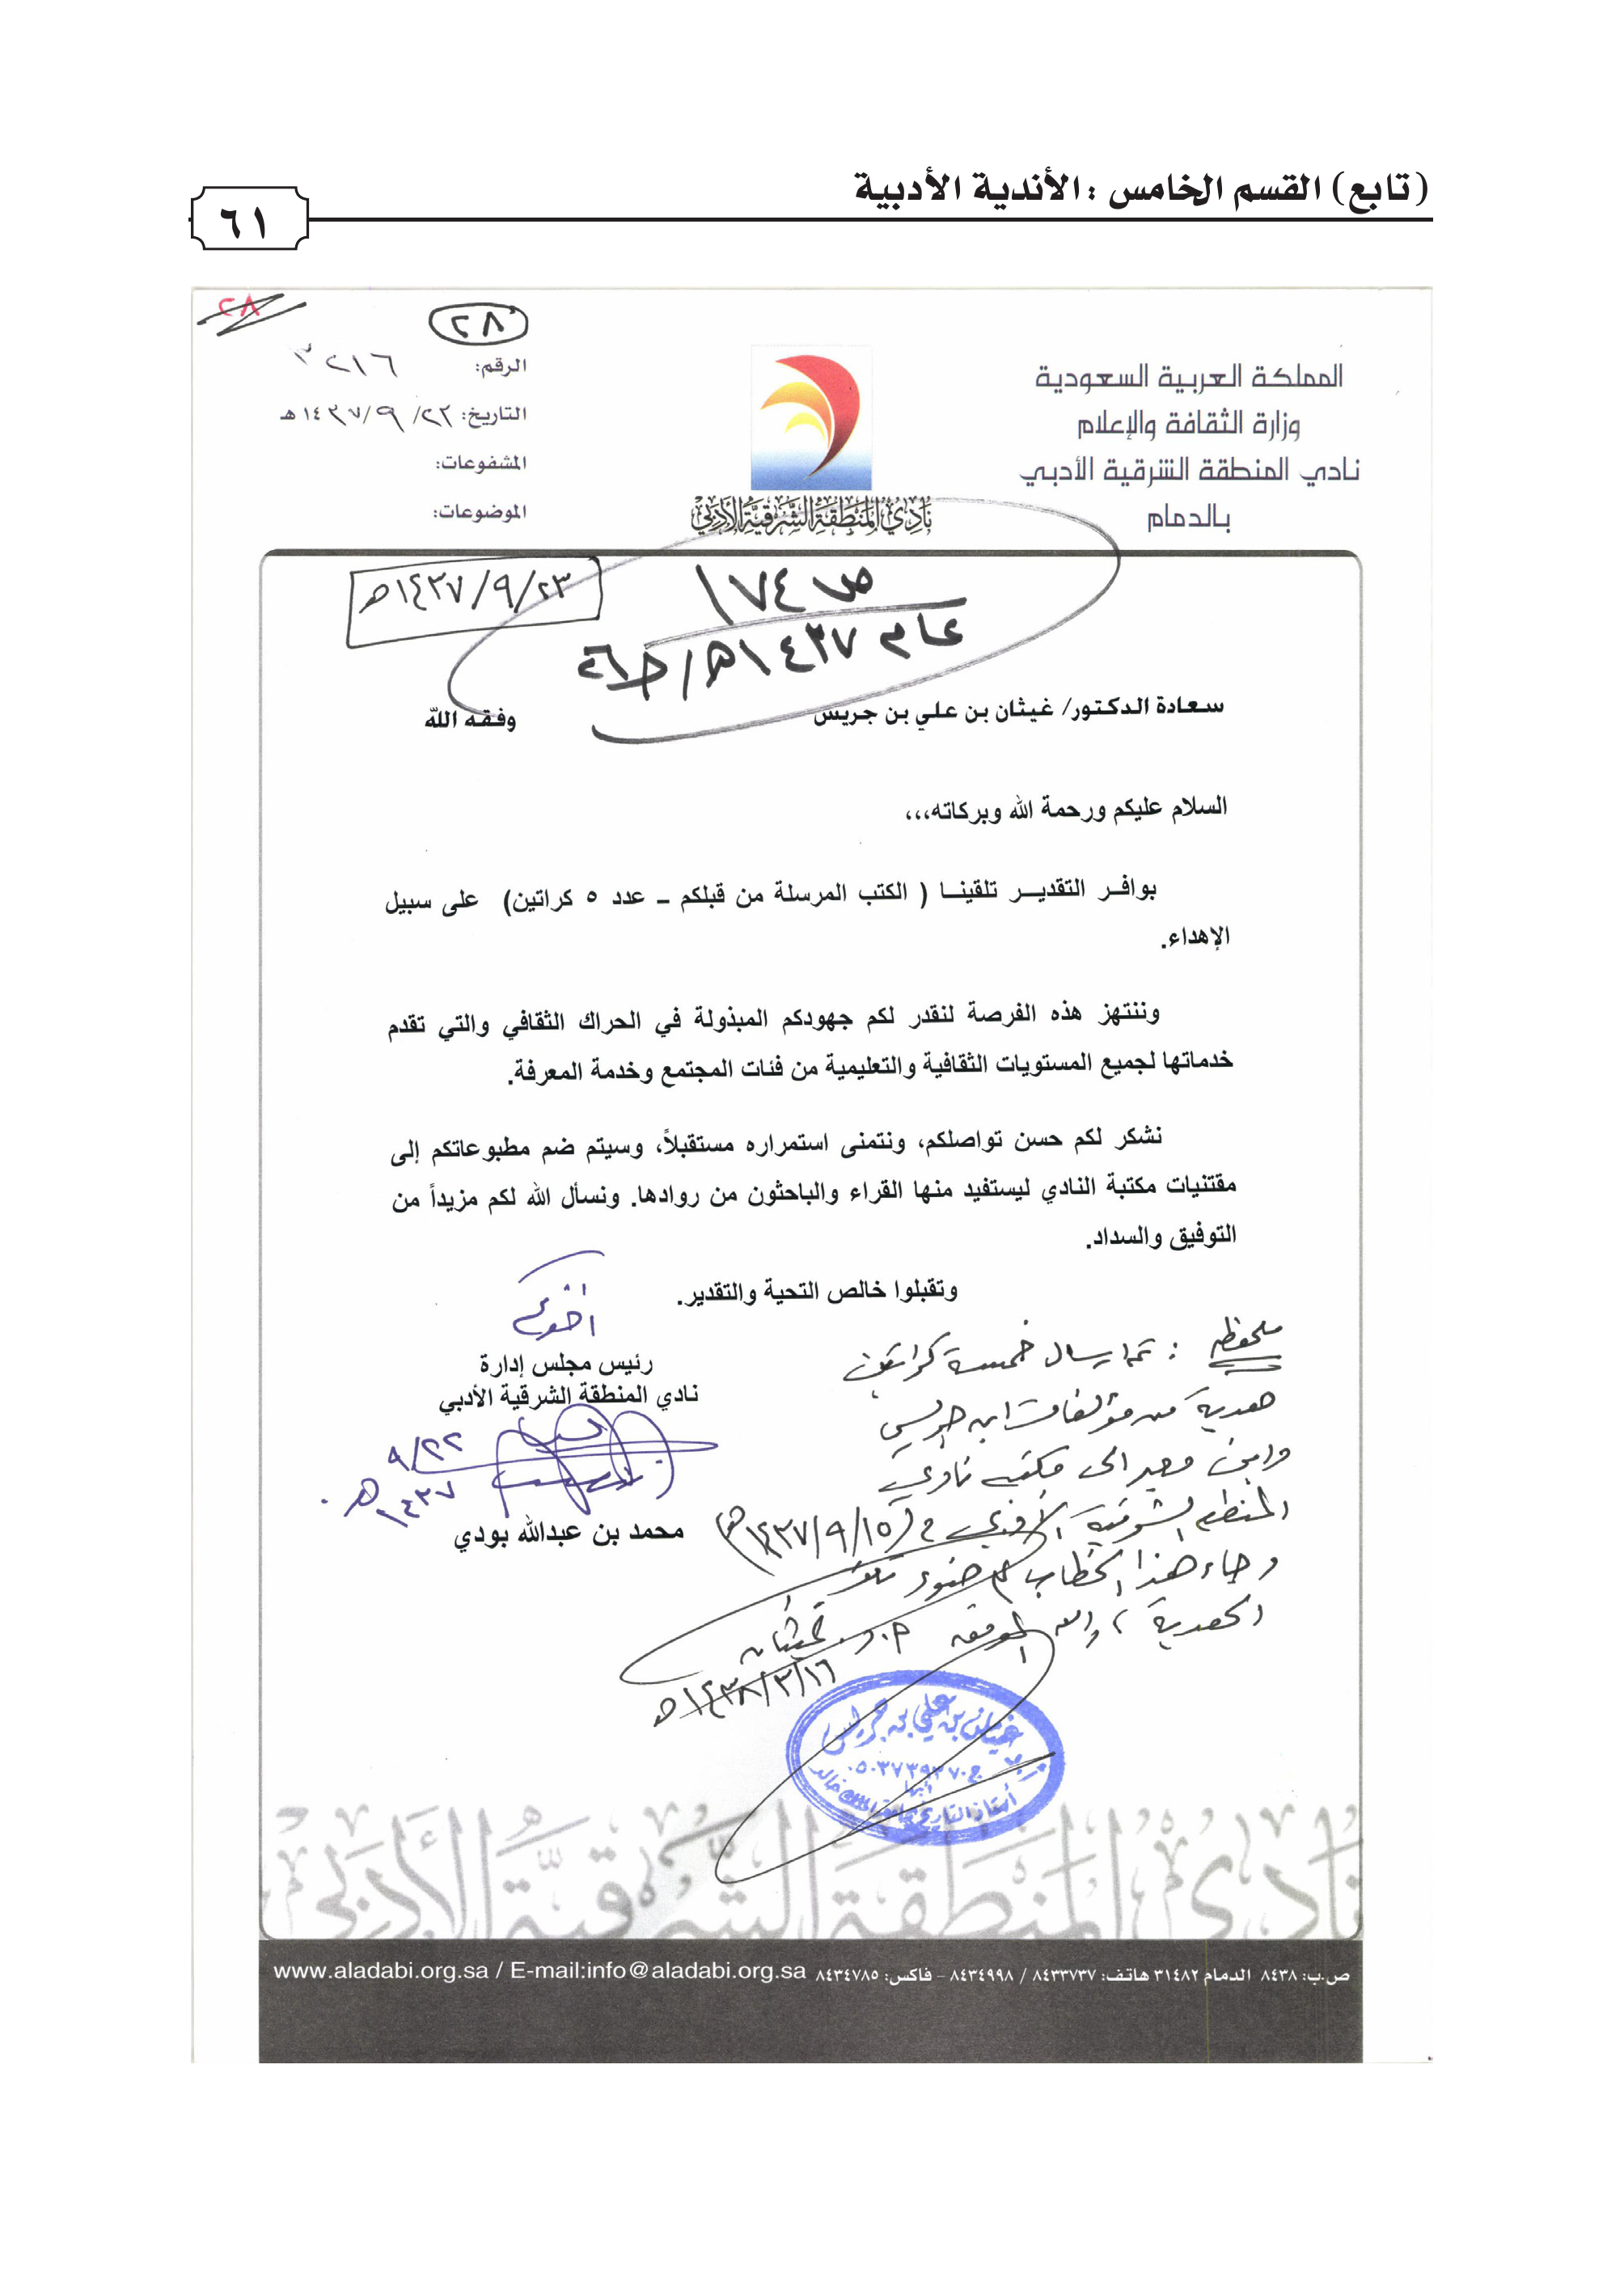 (تابع) القسم الخامس : الأندية الأدبية
٦١
٢٨
٢٨
المملكة العربية السعودية
وزارة الثقافة والإعلام
نادي المنطقة الشرقية الأدبي
بالدمام
نادي المنطقة الشرقية الأدبي
الرقم: ٣٢١٦
التاريخ: ٢٢/ ٩/ ١٤٣٧هـ
المشفوعات:
الموضوعات:
٢٣/ ٩/ ١٤٣٧هـ
ص ١٧٤
عام ١٤٣٧هـ/
سعادة الدكتور/ غيثان بن علي بن جريس وفقه الله
السلام عليكم ورحمة الله وبركاته،،،
بوافر التقدير تلقينا ( الكتب المرسلة من قبلكم – عدد ٥ كراتين) على سبيل
الإهداء.
وننتهز هذه الفرصة لنقدر لكم جهودكم المبذولة في الحراك الثقافي والتي تقدم
خدماتها لجميع المستويات الثقافية والتعليمية من فئات المجتمع وخدمة المعرفة.
نشكر لكم حسن تواصلكم، ونتمنى استمراره مستقبلاً، وسيتم ضم مطبوعاتكم إلى
مقتنيات مكتبة النادي ليستفيد منها القراء والباحثون من روادها. ونسأل الله لكم مزيداً من
التوفيق والسداد.
وتقبلوا خالص التحية والتقدير.
أخوكم
رئيس مجلس إدارة
نادي المنطقة الشرقية الأدبي
٢٢/ ٩
١٤٣٧هـ
محمد بن عبدالله بودي
ملحوظة : تم ارسال خمسة كراتين
هدية من مؤلفات ابن جريس
الى مكتبة نادي
المنطقة الشرقية الأدبي في (١٥/ ٩/ ١٤٣٧هـ)
وجاء هذا الخطاب في ضوء تلك
الهدية، والله الموفق أ.د. غيثان
١٦/ ٣/ ١٤٣٨هـ
غيثان بن علي بن جريس
ج ٠٥٠٣٧٣٩٣٧٠
أبها
أستاذ التاريخ بجامعة الملك خالد
نادي المنطقة الشرقية الأدبي
ص.ب: ٨٤٣٨ الدمام ٣١٤٨٢ هاتف: ٨٤٣٣٧٣٧ / ٨٤٣٤٩٩٨ – فاكس: ٨٤٣٤٧٨٥ www.aladabi.org.sa / E-mail:info@aladabi.org.sa